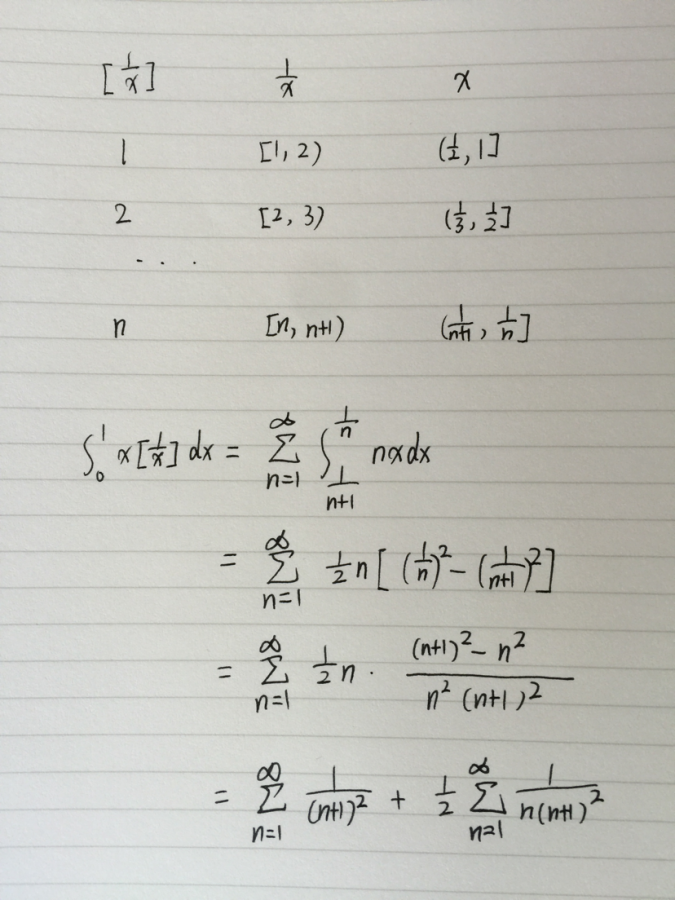 [1/x] 1/x x
1 [1, 2) (1/2, 1]
2 [2, 3) (1/3, 1/2]
. . .
n [n, n+1) (1/(n+1), 1/n]
∫₀¹ x[1/x] dx = ∑_{n=1}^{∞} ∫_{1/(n+1)}^{1/n} nx dx
= ∑_{n=1}^{∞} 1/2 n [ (1/n)² − (1/(n+1))² ]
= ∑_{n=1}^{∞} 1/2 n · ((n+1)² − n²)/(n² (n+1)²)
= ∑_{n=1}^{∞} 1/(n+1)² + 1/2 ∑_{n=1}^{∞} 1/(n(n+1)²)